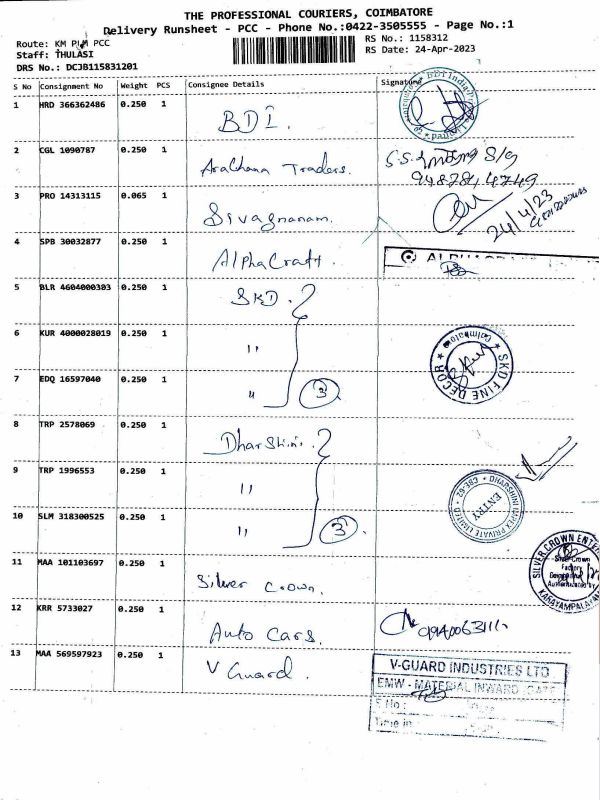 THE PROFESSIONAL COURIERS, COIMBATORE
Delivery Runsheet - PCC - Phone No.:0422-3505555 - Page No.:1
Route: KM PLM PCC
RS No.: 1158312
Staff: THULASI
RS Date: 24-Apr-2023
DRS No.: DCJB115831201
S No Consignment No Weight PCS Consignee Details Signature
1 HRD 366362486 0.250 1 BDI.
2 CGL 1090787 0.250 1 Arachana Traders.
3 PRO 14313115 0.065 1 Sivagnanam. 24/4/23
4 SPB 30032877 0.250 1 AlphaCraft.
5 BLR 4604000303 0.250 1 SKD.
6 KUR 4000028019 0.250 1 "
7 EDQ 16597040 0.250 1 " 3
SKD FINE DECOR * Coimbatore *
8 TRP 2578069 0.250 1 Dharshini.
9 TRP 1996553 0.250 1 "
10 SLM 318300525 0.250 1 " 3
DHARSHINI IMPEX PRIVATE LIMITED * CBE-62 *
ENTRY
11 MAA 101103697 0.250 1 Silver Crown.
SILVER CROWN
Silver Crown
Factory
12 KRR 5733027 0.250 1 Auto Cars.
13 MAA 569597923 0.250 1 V Guard.
V-GUARD INDUSTRIES LTD
EMW - MATERIAL INWARD GATE
S No :
Time in :